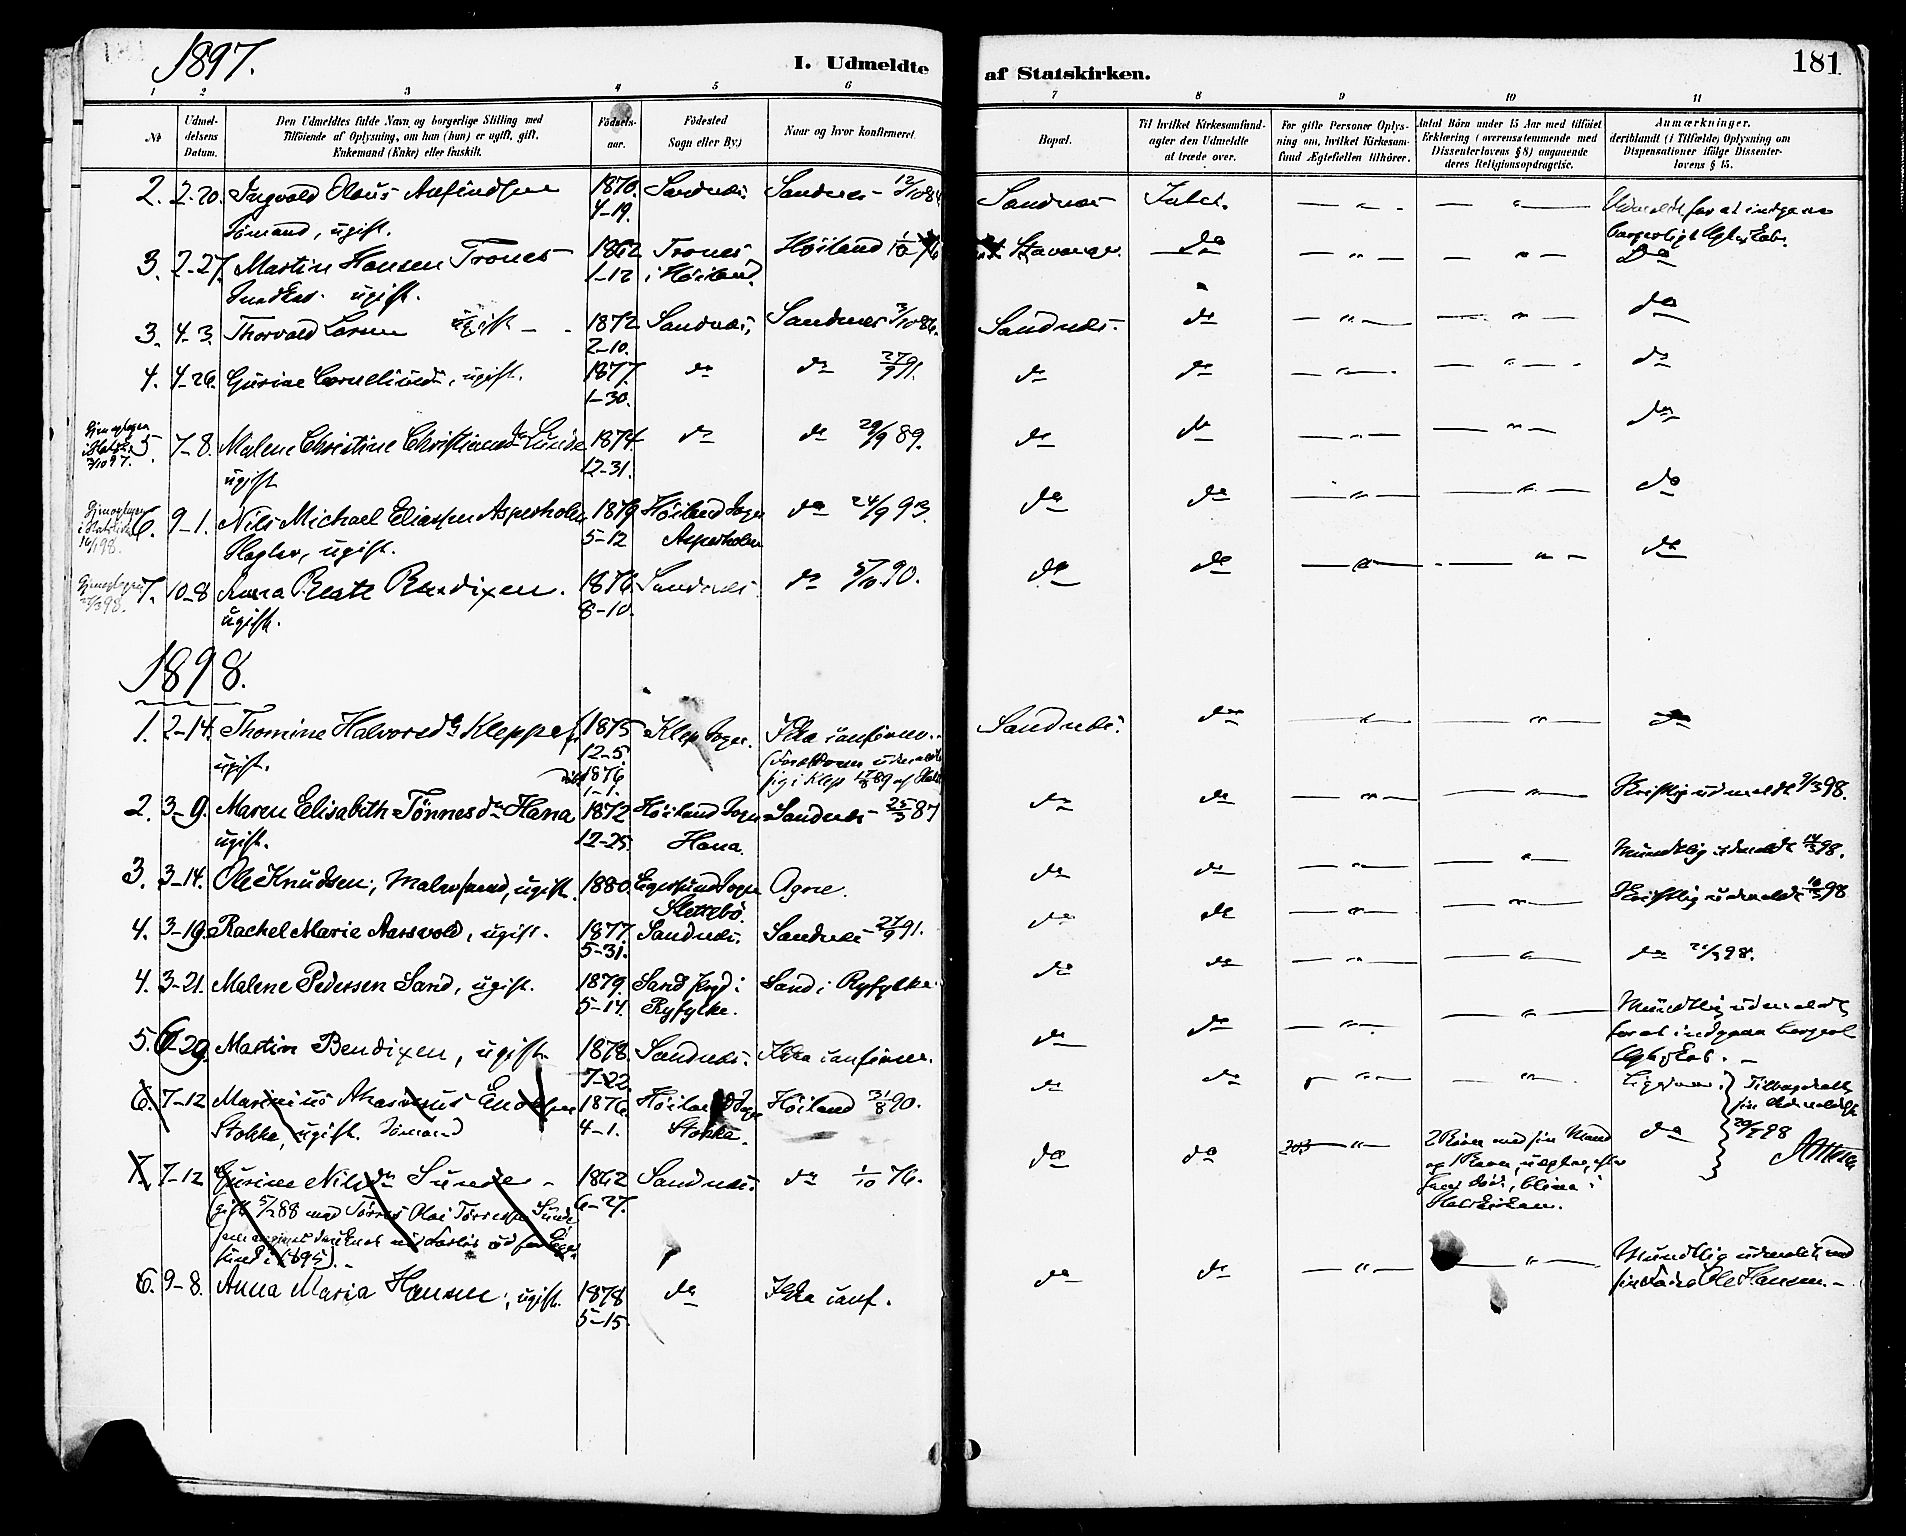 1897.
I. Udmeldte af Statskirken.
181
1 2 3 4 5 6 7 8 9 10 11
No
Udmel-
delsens
Datum.
Den Udmeldtes fulde Navn og borgerlige Stilling med
Tilföiende af Oplysning, om han (hun) er ugift, gift,
Enkemand (Enke) eller fraskilt.
Födsels-
aar.
Födested
Sogn eller By.)
Naar og hvor konfirmeret
Bopæl.
Til hvilket Kirkesamfund-
agter den Udmeldte
at træde over.
For gifte Personer Oplys-
ning om, hvilket Kirkesam-
fund Ægtefællen tilhörer.
Antal Börn under 15 Aar med tilföiet
Erklæring (overensstemmende med
Dissenterlovens § 8) angaaende
deres Religionsopdragelse.
Anmærkninger.
deriblandt (i Tilfælde) Oplysning om
Dispensationer ifölge Dissenter-
lovens § 15.
2. 2-20. Ingvald Olaus 1870. Sandnæs. Sandnes 12/10 84 Sandnæs Intet. — " — — " — Udmeldt for at indgaa
Sömand, ugift. 4-19. borgerligt Egteskab.
3. 2-27. Martin Hansen Trones 1862 Trones Höiland 1/10 76 Stavanger. do — " — — " — Do
ugift. 1-12 i Höiland
3. 4-3. Thorvald Larsen ugift — 1872 Sandnæs, Sandnes 3/10 86. Sandnæs. do — " — — " — do
2-10.
4. 4-26. Gurine Corneliusdr, ugift. 1877. do do 27/9 91. do do — " — — " — do
1-30.
5. 7-8. Malene Christine Christiansdr Lunde 1874 do do 29/9 89. do do — " — — " — do
ugift 12-31.
6. 9-1. Nils Michael Eliassen Aspersholm 1879 Höiland Sogn do 24/9 93. do do — " — — " — do
ugift. 5-12 Aspersholm
7. 10-8 Anna Beate Bendixen. 1876 Sandnæs. do 5/10 90. do do — " — — " — do
ugift. 8-10.
1898.
1. 2-14. Thomine Halvorsdr Kleppe 1875 Klep Sogn. Ikke confirm. Sandnæs. do — " — — " — do
ugift. 12-5.
1876
1-1.
2. 3-9. Maren Elisabeth Tönnesdr Hana 1872 Höiland Sogn Sandnæs 25/9 87 do do — " — — " — Skriftlig udmeldt 9/3 98.
ugift. 12-25 Hana.
3. 3-14. Ole Knudsen, Malersvend, ugift. 1880. Egersund Sogn Ogne. do do — " — — " — Mundtlig udmeldt 14/3 98.
Slettebö.
4. 3-19. Rachel Marie Aarsvold, ugift. 1877. Sandnæs. Sandnæs 27/9 91. do do — " — — " — Skriftlig udmeldt 98
5-31.
4. 3-21. Malene Pedersen Sand, ugift. 1879. Sand Sogn i Sand i Ryfylke. do do — " — — " — do 21/3 98.
5-14. Ryfylke.
5. 6-29. Martin Bendixen, ugift. 1878 Sandnæs. Ikke confirm. do do — " — — " — Mundtlig udmeldt
7-22 for at indgaa borgerl
Egtesk.
6. 7-12 Marinius Enoksen 1876 Höiland Sogn Höiland 31/8 90. do do — " — — " — Tilbagekaldt
Stokka, ugift. Sömand 4-1. Stokka. sin Udmeldelse
7. 7-12 Gurine Nilsdr Sunde — 1862 Sandnæs. do 1/10 76. do do " 2 Börn med sin Mand do
gift 5/2 88 med Törres Olai Törresen Sunde 6-27.
sund i 1895). — Statskirken.
6. 9-8. Anna Maria Hansen, ugift. 1878 do Ikke conf. do do — " — — " — Mundtlig udmeldt ved
5-15. sin Fader Ole Hansen. —